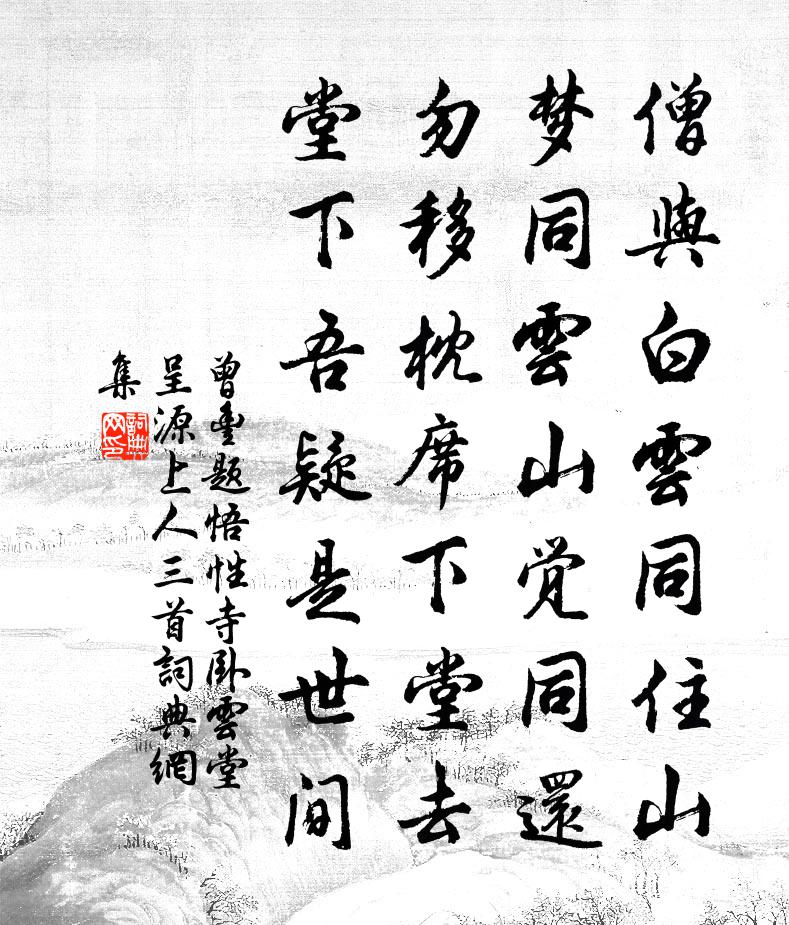 僧與白雲同住山
梦同雲山觉同還
勿移枕席下堂去
堂下吾疑是世间
曾豊题悟性寺卧雲堂
呈源上人三首詞典網
集
詞典
网